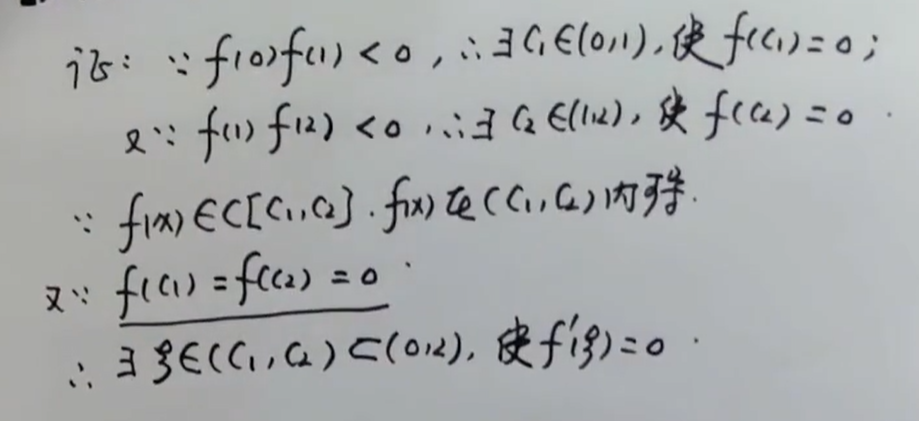 证: ∵ f(0)f(1) < 0, ∴ ∃ C₁∈(0,1), 使 f(C₁)=0;
又∵ f(1) f(2) < 0, ∴ ∃ C₂∈(1,2), 使 f(C₂)=0.
∵ f(x)∈C[C₁,C₂]. f(x)在(C₁,C₂)内可导.
又∵ f(C₁)=f(C₂)=0.
∴ ∃ ξ∈(C₁,C₂)⊂(0,2), 使f′(ξ)=0.